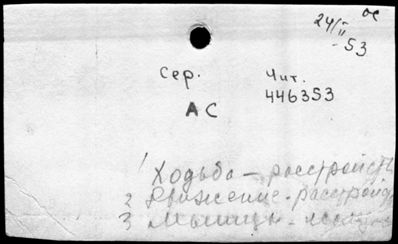 24/II ос
-53
Сер. Чит.
АС 446353
1 Ходьба - расстройств
2 Движение - расстройс
3 Мышцы -